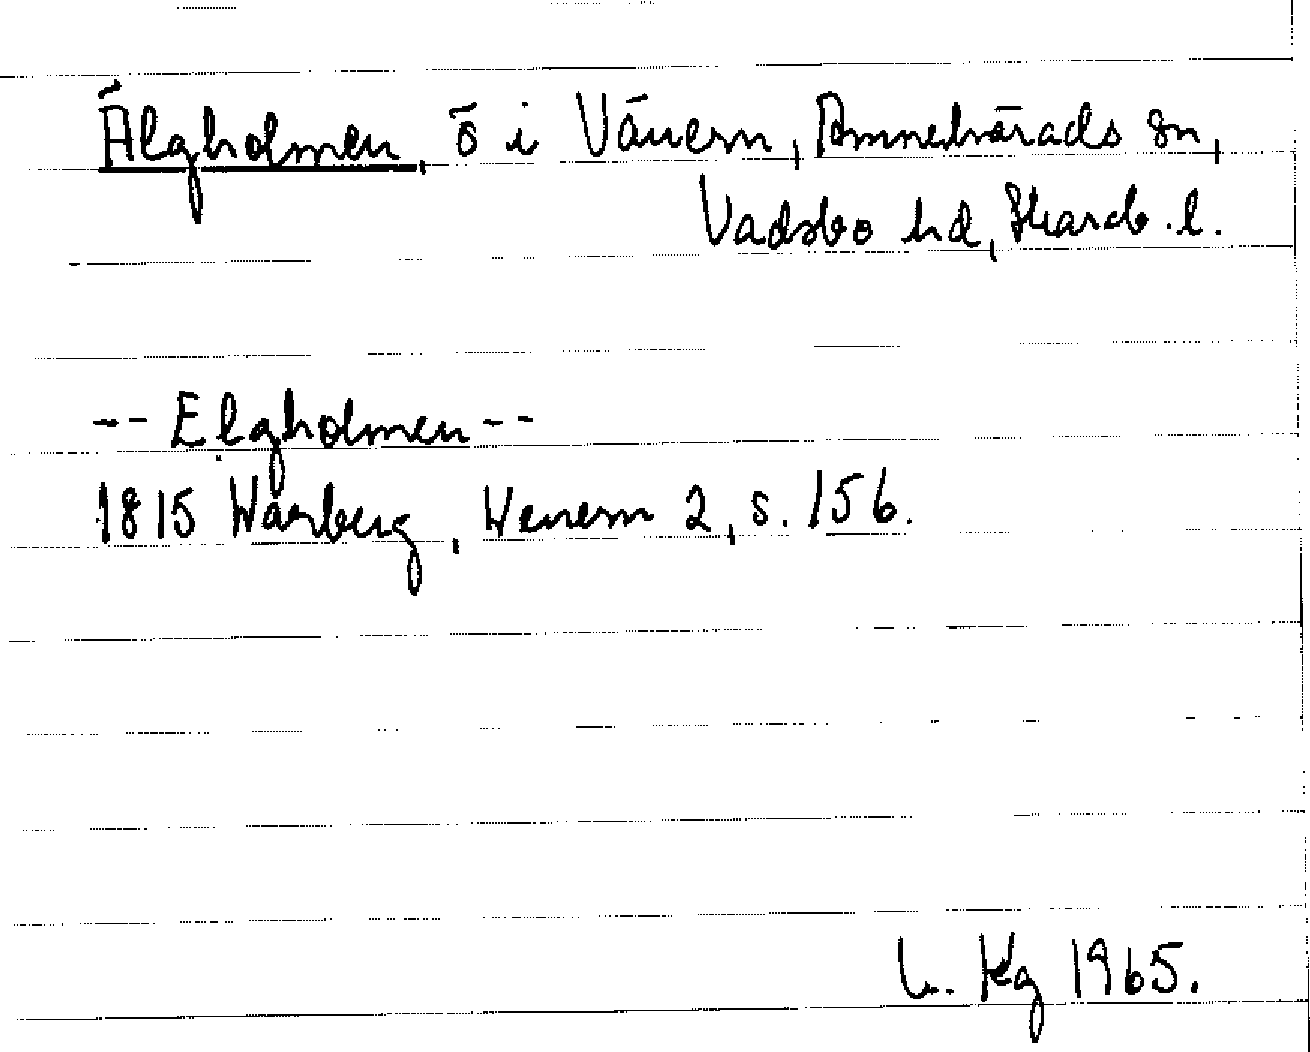 Älgholmen, ö i Vänern, Amnehärads sn,
Vadsbo hd, Skarab. l.
-- Elgholmen --
1815 Warberg, Wenern 2, s. 156.
L. Kg 1965.